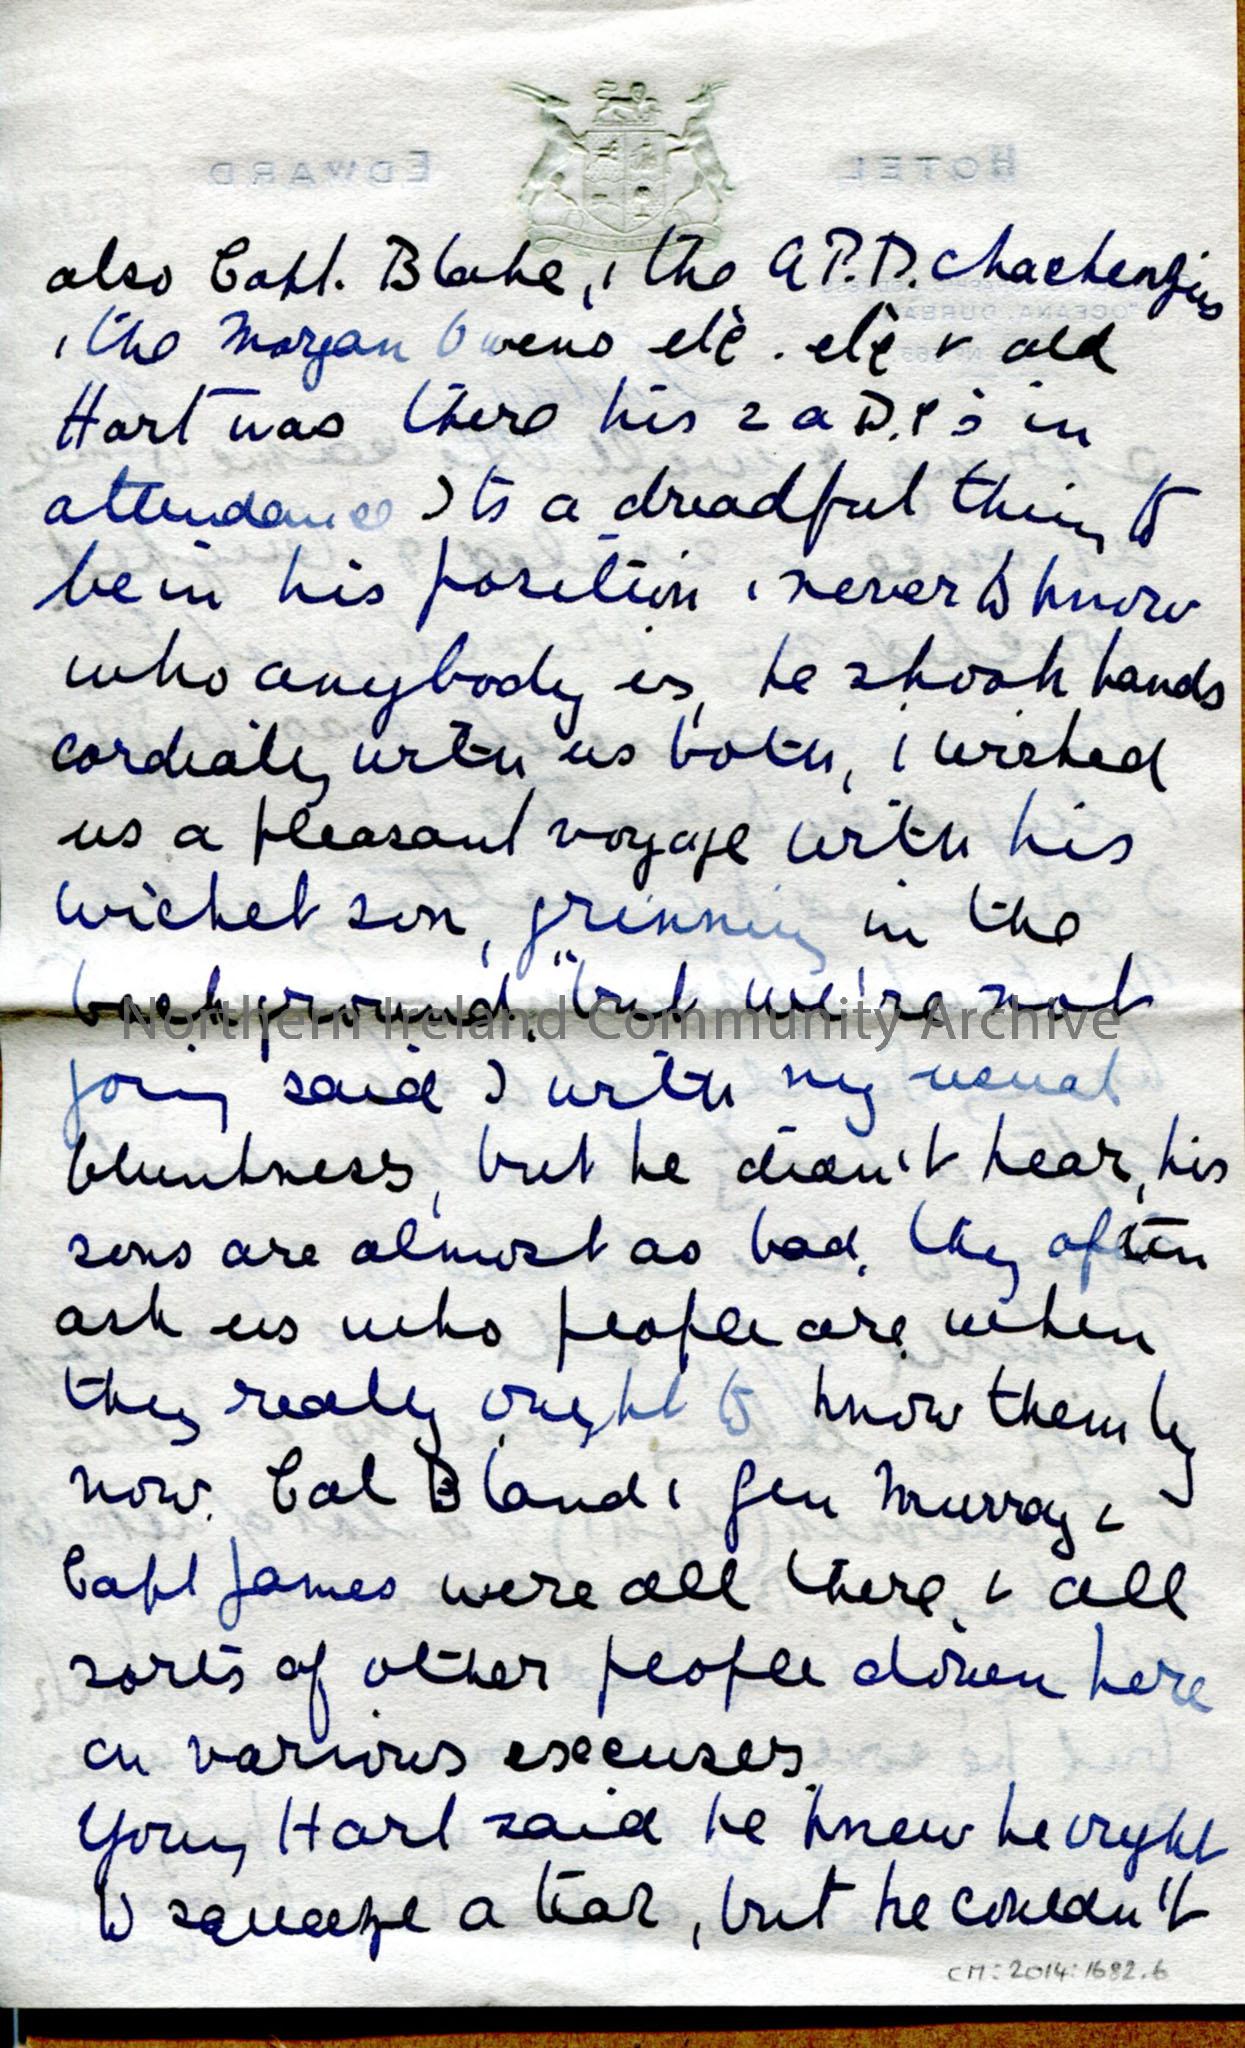 HOTEL EDWARD
also Capt. Blake, & the A.P.D. Mackenzies
& the Morgan Owens etc. etc & old
Hart was there his 2 a D.C's in
attendance Its a dreadful thing to
be in his position & never to know
who anybody is, he shook hands
cordially with us both, & wished
us a pleasant voyage with his
wicket son, grinning in the
background, "but we're not
going said I with my usual
bluntness, but he didn't hear, his
sons are almost as bad, they often
ask us who people are when
they really ought to know them by
now. Col Bland & Gen Murray &
Capt James were all there, & all
sorts of other people down here
on various excuses.
Young Hart said he knew he ought
to squeeze a tear, but he couldn't
Northern Ireland Community Archive
CM:2014:1682.6